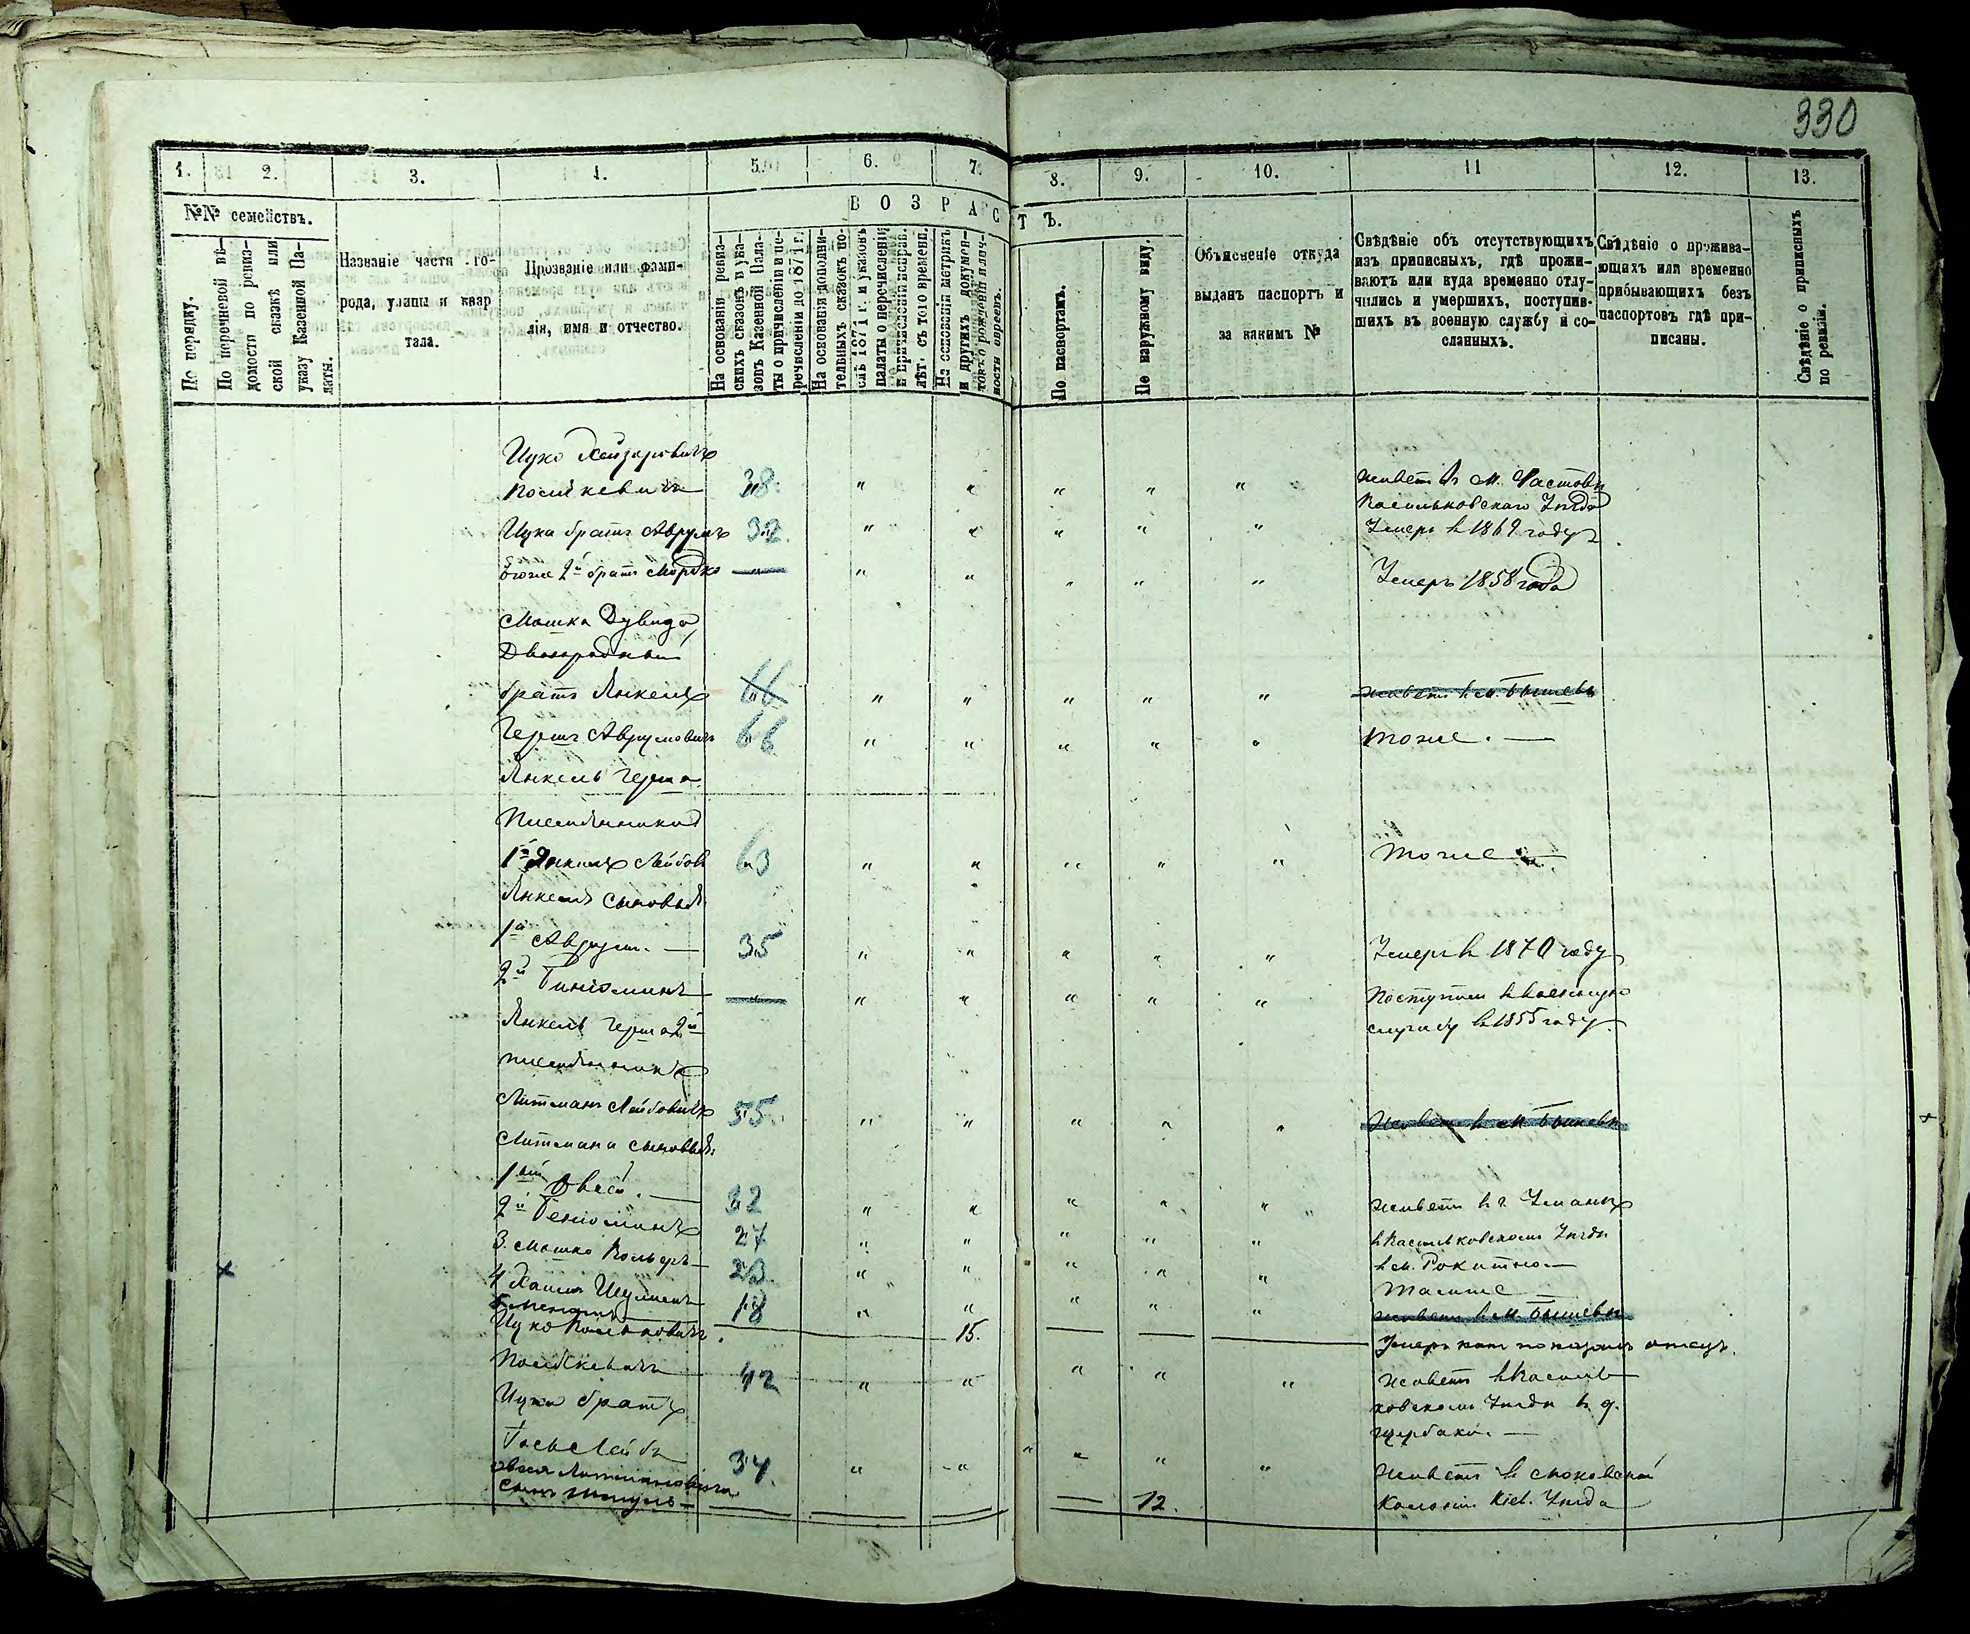 330
1. 2. 3. 4. 5. 6. 7. 8. 9. 10. 11 12. 13.
№№ семействъ.
В О З Р А С Т Ъ.
По порядку.
По перечневой вѣ-
домости по ревиз-
ской сказкѣ или
указу Казенной Па-
латы.
Названіе части го-
рода, улицы и квар
тала.
Прозваніе или фами-
лія, имя и отчество.
На основаніи ревиз-
скихъ сказокъ и ука-
зовъ Казенной Пала-
ты о причисленіи и пе-
речисленіи до 1871 г.
На основаніи дополни-
тельныхъ сказокъ по-
слѣ 1871 г. и указовъ
палаты о перечисленіи
и причисленіи исправ.
лѣт. съ того времени.
На основаніи метрикъ
и другихъ докумен-
товъ о рожденіи и лич-
ности евреевъ.
По паспортамъ.
По наружному виду.
Объясненіе откуда
выданъ паспортъ и
за какимъ №
Свѣдѣніе объ отсутствующихъ
изъ приписныхъ, гдѣ прожи-
ваютъ или куда временно отлу-
чились и умершихъ, поступив-
шихъ въ военную службу и со-
сланныхъ.
Свѣдѣніе о прожива-
ющихъ или временно
прибывающихъ безъ
паспортовъ гдѣ при-
писаны.
Свѣдѣніе о приписныхъ
по ревизіи.
Ицко
38. " " " " " живетъ въ м. Фастовѣ
Васильковскаго Уѣзда
Ицка братъ Аврумъ 32. " " " " " Умеръ в 1869 году
Его же 2й братъ Мордко — " " " " " " Умеръ 1858 года
Мошка Дувида
Двоюродный
братъ Янкель 66 " " " " " живетъ в м. Бышевѣ
Герш Аврумовичъ 66 " " " " " тоже. —
Янкель Герша
Племянники
1й Янкель Лейбов 63 " " " " " тоже
Янкеля сыновья
1й Аврум. — 35 " " " " " Умеръ в 1870 году
2й Биніоминъ — " " " " " " Поступилъ в военную
службу в 1855 году.
Янкель Герша 2й
племянникъ
Литманъ Лейбовичъ 55. " " " " " Живетъ в м Бышевѣ
Литмана сыновья
1ый Овсей. — 32 " " " " " живетъ в г. Умань
2й Беніоминъ 27 " " " " " в Васильковскомъ Уѣздѣ
3. Мошко 23. " " " " " в м. Рокитно —
4 Хаимъ 18 " " " " "
живетъ в м Бышевѣ
Ицко 15. Умеръ
42 " " " " " живетъ в Василь-
ковскомъ Уѣздѣ в д.
Ицки братъ
Щербаки. —
Лейба 34. " " " " " Живетъ в
Овсея Литмановича
сынъ 12. Колоніи Кіев. Уѣзда